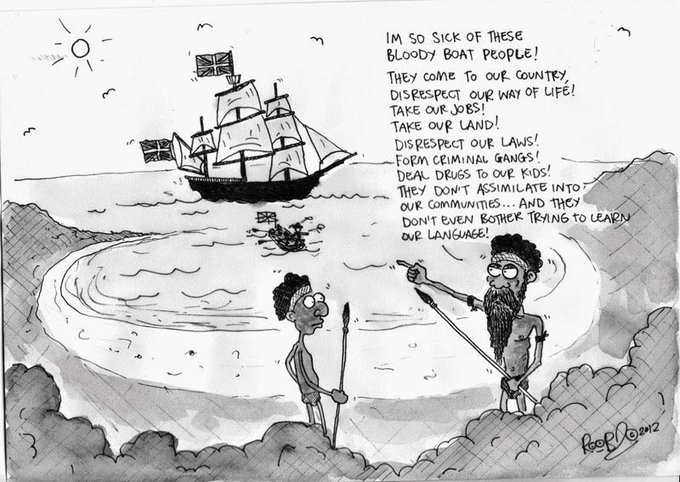 IM SO SICK OF THESE
BLOODY BOAT PEOPLE!
THEY COME TO OUR COUNTRY,
DISRESPECT OUR WAY OF LIFE!
TAKE OUR JOBS!
TAKE OUR LAND!
DISRESPECT OUR LAWS!
FORM CRIMINAL GANGS!
DEAL DRUGS TO OUR KIDS!
THEY DON'T ASSIMILATE INTO
OUR COMMUNITIES... AND THEY
DON'T EVEN BOTHER TRYING TO LEARN
OUR LANGUAGE!
©2012